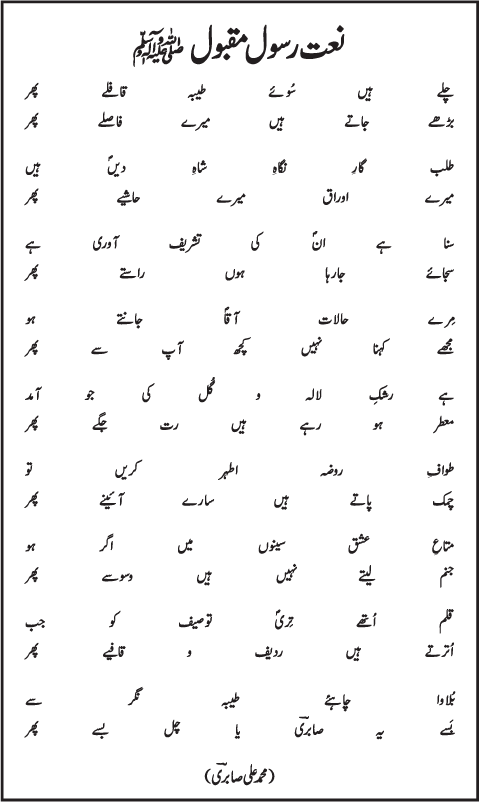 نعت رسول مقبول ﷺ
چلے ہیں سُوئے طیبہ قافلے پھر
بڑھے جاتے ہیں میرے فاصلے پھر
طلب گارِ نگاہِ شاہِ دیںؐ ہیں
میرے اوراق میرے حاشیے پھر
سنا ہے انؐ کی تشریف آوری ہے
سجائے جارہا ہوں راستے پھر
مِرے حالات آقاؐ جانتے ہو
مجھے کہنا نہیں کچھ آپ سے پھر
ہے رشکِ لالہ و گُل کی جو آمد
معطر ہو رہے ہیں رت جگے پھر
طوافِ روضہ اطہر کریں تو
چمک پاتے ہیں سارے آئینے پھر
متاعِ عشق سینوں میں اگر ہو
جنم لیتے نہیں ہیں وسوسے پھر
قلم اُٹھے تِریؐ توصیف کو جب
اُترتے ہیں ردیف و قافیے پھر
بُلاوا چاہئے طیبہ نگر سے
بَسے یہ صابریؔ یا چل بسے پھر
(محمد علی صابریؔ)